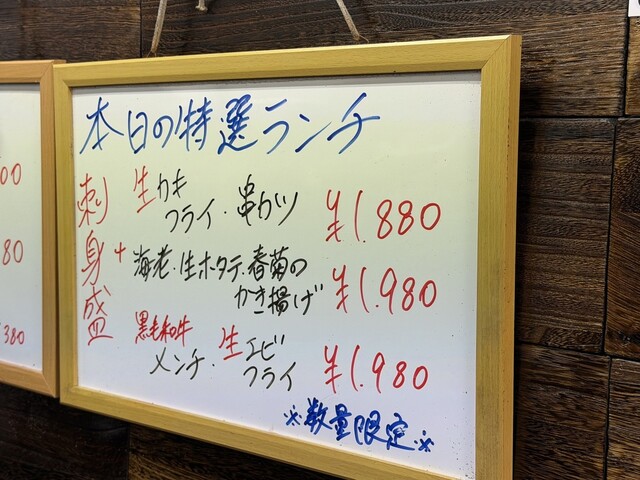 本日の特選ランチ
刺身盛
+
生カキ
フライ・串カツ
¥1.880
海老・生ホタテ・春菊の
かき揚げ
¥1.980
黒毛和牛
メンチ・生エビ
フライ
¥1.980
※数量限定※
00
80
380